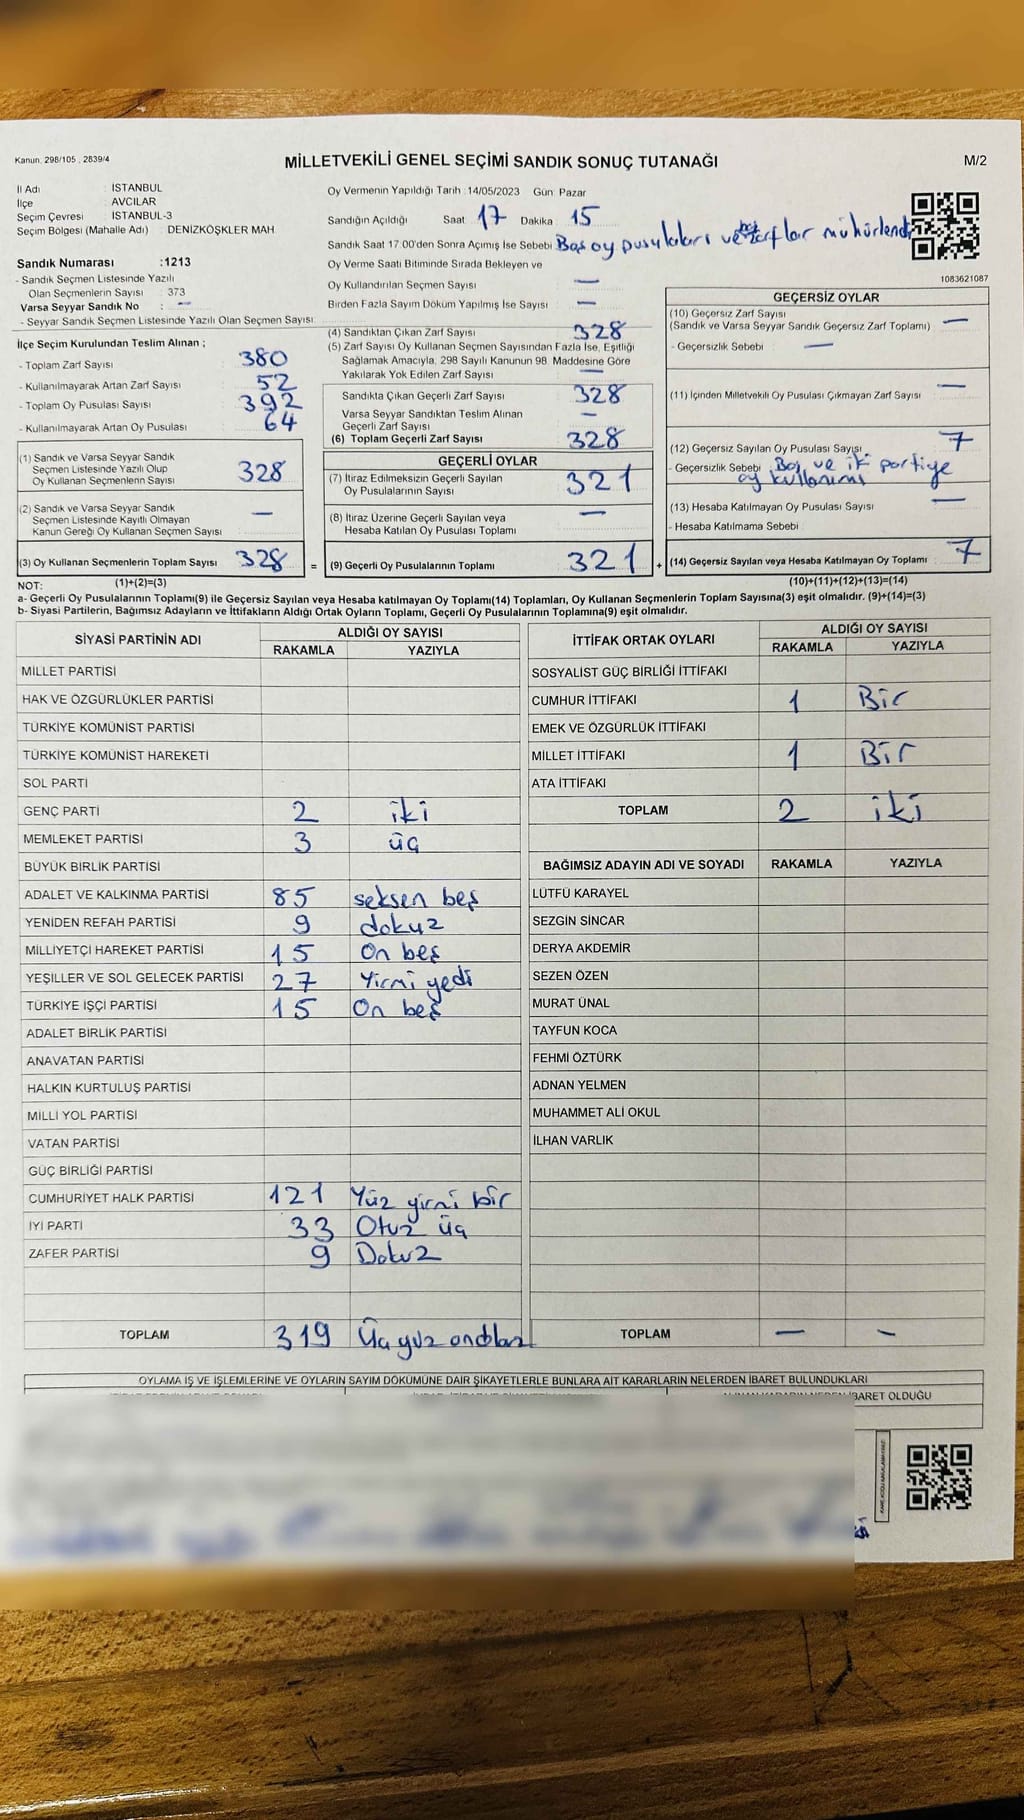 Kanun. 298/105 , 2839/4
MİLLETVEKİLİ GENEL SEÇİMİ SANDIK SONUÇ TUTANAĞI
M/2
İl Adı : İSTANBUL
İlçe : AVCILAR
Seçim Çevresi : İSTANBUL-3
Seçim Bölgesi (Mahalle Adı) : DENİZKÖŞKLER MAH.
Oy Vermenin Yapıldığı Tarih :14/05/2023 Gün: Pazar
Sandığın Açıldığı Saat 17 Dakika 15
Sandık Saat 17.00'den Sonra Açımış İse Sebebi Boş oy pusulaları ve boş zarflar mühürlendi
Oy Verme Saati Bitiminde Sırada Bekleyen ve
Oy Kullandırılan Seçmen Sayısı —
Birden Fazla Sayım Döküm Yapılmış İse Sayısı —
1083621087
Sandık Numarası :1213
- Sandık Seçmen Listesinde Yazılı
Olan Seçmenlerin Sayısı : 373
Varsa Seyyar Sandık No : —
- Seyyar Sandık Seçmen Listesinde Yazılı Olan Seçmen Sayısı:
İlçe Seçim Kurulundan Teslim Alınan ;
- Toplam Zarf Sayısı : 380
- Kullanılmayarak Artan Zarf Sayısı : 52
- Toplam Oy Pusulası Sayısı : 392
- Kullanılmayarak Artan Oy Pusulası : 64
(1) Sandık ve Varsa Seyyar Sandık
Seçmen Listesinde Yazılı Olup
Oy Kullanan Seçmenlerin Sayısı 328
(2) Sandık ve Varsa Seyyar Sandık
Seçmen Listesinde Kayıtlı Olmayan
Kanun Gereği Oy Kullanan Seçmen Sayısı —
(3) Oy Kullanan Seçmenlerin Toplam Sayısı 328 =
(4) Sandıktan Çıkan Zarf Sayısı 328
(5) Zarf Sayısı Oy Kullanan Seçmen Sayısından Fazla İse, Eşitliği
Sağlamak Amacıyla, 298 Sayılı Kanunun 98. Maddesine Göre
Yakılarak Yok Edilen Zarf Sayısı —
Sandıkta Çıkan Geçerli Zarf Sayısı 328
Varsa Seyyar Sandıktan Teslim Alınan
Geçerli Zarf Sayısı —
(6) Toplam Geçerli Zarf Sayısı 328
GEÇERLİ OYLAR
(7) İtiraz Edilmeksizin Geçerli Sayılan
Oy Pusulalarının Sayısı 321
(8) İtiraz Üzerine Geçerli Sayılan veya
Hesaba Katılan Oy Pusulası Toplamı —
(9) Geçerli Oy Pusulalarının Toplamı 321 +
GEÇERSİZ OYLAR
(10) Geçersiz Zarf Sayısı
(Sandık ve Varsa Seyyar Sandık Geçersiz Zarf Toplamı) —
- Geçersizlik Sebebi : —
(11) İçinden Milletvekili Oy Pusulası Çıkmayan Zarf Sayısı —
(12) Geçersiz Sayılan Oy Pusulası Sayısı 7
- Geçersizlik Sebebi Boş ve iki partiye
oy kullanımı
(13) Hesaba Katılmayan Oy Pusulası Sayısı —
- Hesaba Katılmama Sebebi
(14) Geçersiz Sayılan veya Hesaba Katılmayan Oy Toplamı 7
NOT: (1)+(2)=(3) (10)+(11)+(12)+(13)=(14)
a- Geçerli Oy Pusulalarının Toplamı(9) ile Geçersiz Sayılan veya Hesaba katılmayan Oy Toplamı(14) Toplamları, Oy Kullanan Seçmenlerin Toplam Sayısına(3) eşit olmalıdır. (9)+(14)=(3)
b- Siyasi Partilerin, Bağımsız Adayların ve İttifakların Aldığı Ortak Oyların Toplamı, Geçerli Oy Pusulalarının Toplamına(9) eşit olmalıdır.
SİYASİ PARTİNİN ADI ALDIĞI OY SAYISI
RAKAMLA YAZIYLA
MİLLET PARTİSİ
HAK VE ÖZGÜRLÜKLER PARTİSİ
TÜRKİYE KOMÜNİST PARTİSİ
TÜRKİYE KOMÜNİST HAREKETİ
SOL PARTİ
GENÇ PARTİ 2 iki
MEMLEKET PARTİSİ 3 üç
BÜYÜK BİRLİK PARTİSİ
ADALET VE KALKINMA PARTİSİ 85 seksen beş
YENİDEN REFAH PARTİSİ 9 dokuz
MİLLİYETÇİ HAREKET PARTİSİ 15 On beş
YEŞİLLER VE SOL GELECEK PARTİSİ 27 Yirmi yedi
TÜRKİYE İŞÇİ PARTİSİ 15 On beş
ADALET BİRLİK PARTİSİ
ANAVATAN PARTİSİ
HALKIN KURTULUŞ PARTİSİ
MİLLİ YOL PARTİSİ
VATAN PARTİSİ
GÜÇ BİRLİĞİ PARTİSİ
CUMHURİYET HALK PARTİSİ 121 Yüz yirmi bir
İYİ PARTİ 33 Otuz üç
ZAFER PARTİSİ 9 Dokuz
TOPLAM 319 Üç yüz ondokuz
İTTİFAK ORTAK OYLARI ALDIĞI OY SAYISI
RAKAMLA YAZIYLA
SOSYALİST GÜÇ BİRLİĞİ İTTİFAKI
CUMHUR İTTİFAKI 1 Bir
EMEK VE ÖZGÜRLÜK İTTİFAKI
MİLLET İTTİFAKI 1 Bir
ATA İTTİFAKI
TOPLAM 2 iki
BAĞIMSIZ ADAYIN ADI VE SOYADI RAKAMLA YAZIYLA
LÜTFÜ KARAYEL
SEZGİN SİNCAR
DERYA AKDEMİR
SEZEN ÖZEN
MURAT ÜNAL
TAYFUN KOCA
FEHMİ ÖZTÜRK
ADNAN YELMEN
MUHAMMET ALİ OKUL
İLHAN VARLIK
TOPLAM — —
OYLAMA İŞ VE İŞLEMLERİNE VE OYLARIN SAYIM DÖKÜMÜNE DAİR ŞİKAYETLERLE BUNLARA AİT KARARLARIN NELERDEN İBARET BULUNDUKLARI
İBARET OLDUĞU